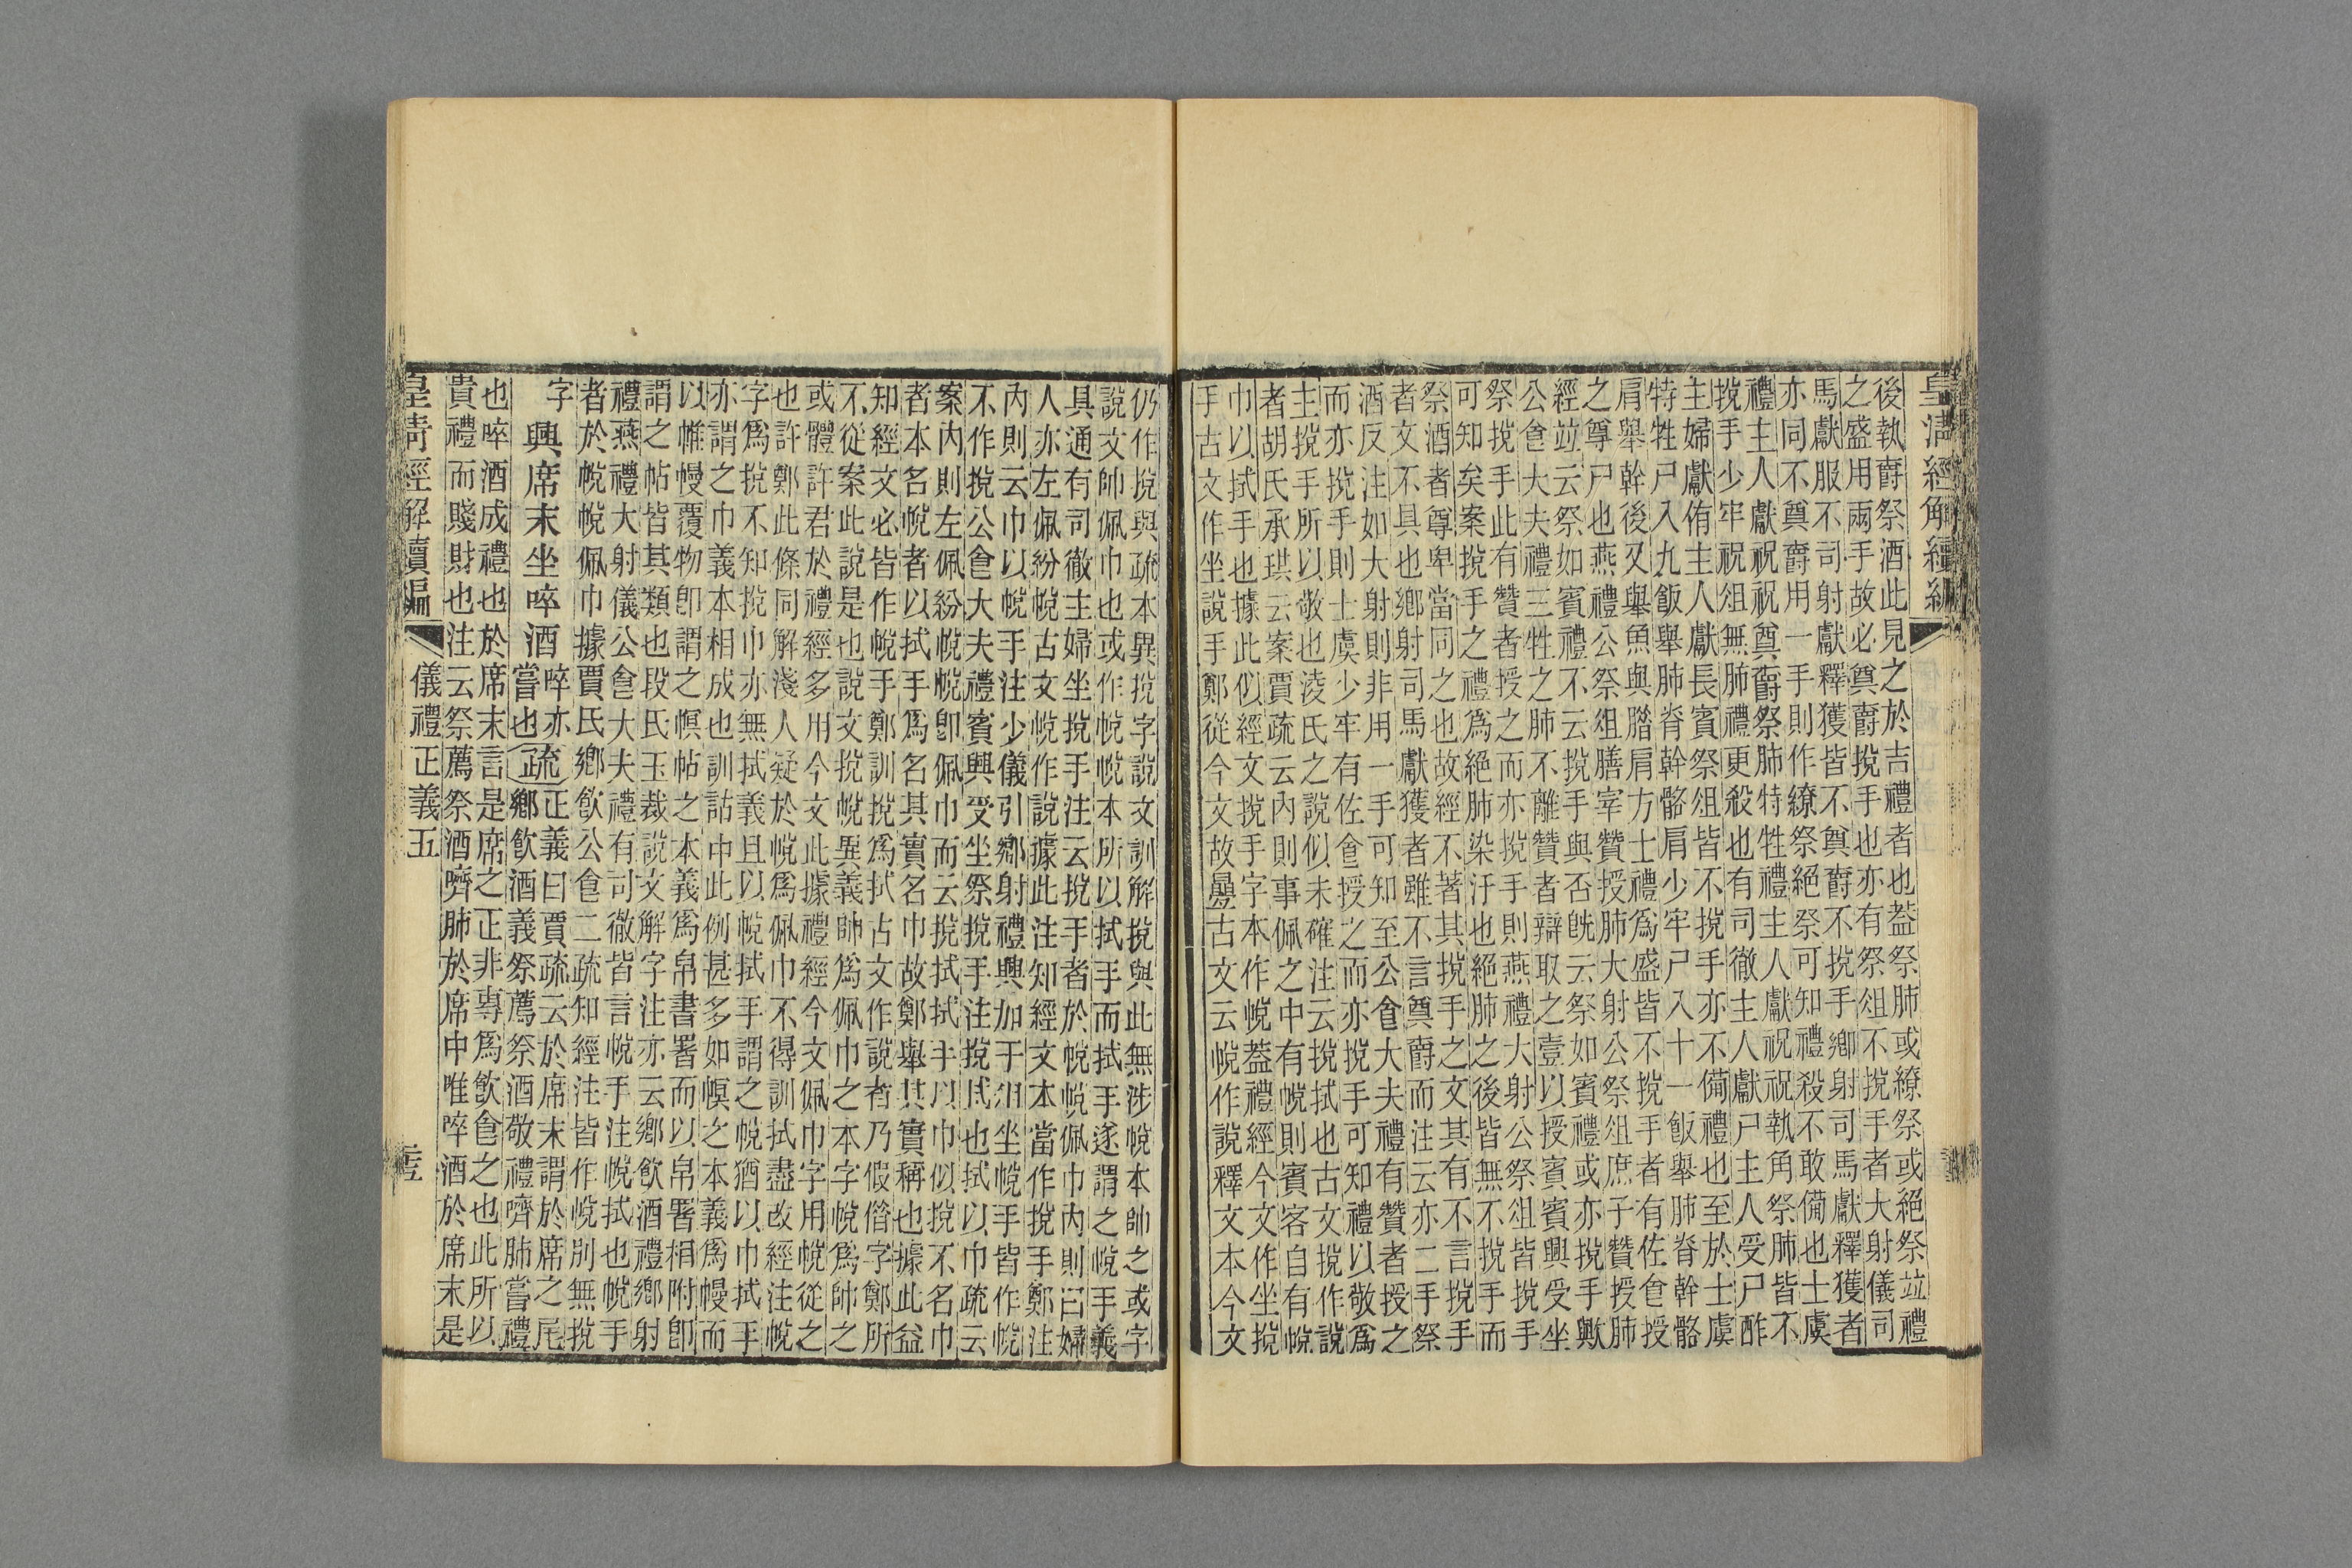 後執爵祭酒此見之於吉禮者也葢祭肺或繚祭或絕祭竝禮
之盛用兩手故必奠爵挩手也亦有祭俎不挩手者大射儀司
馬獻服不司射獻釋獲皆不奠爵不挩手鄉射司馬獻釋獲者
亦同不奠爵用一手則作繚祭絕祭可知禮殺不敢備也士虞
禮主人獻祝祝奠爵祭肺特牲禮主人獻祝祝執角祭肺皆不
挩手少牢祝俎無肺禮更殺也有司徹主人獻尸主人受尸酢
主婦獻侑主人獻長賓祭俎皆不挩手亦不備禮也至於士虞
特牲尸入九飯舉肺脊幹骼肩少牢尸入十一飯舉肺脊幹骼
肩舉幹後又舉魚與腊肩方士禮爲盛皆不挩手者有佐食授
之尊尸也燕禮公祭俎膳宰贊授肺大射公祭俎庶子贊授肺
經竝云祭如賓禮不云挩手與否旣云祭如賓禮或亦挩手歟
公食大夫禮三牲之肺不離贊者辯取之壹以授賓賓興受坐
祭挩手此有贊者授之而亦挩手則燕禮大射公祭俎皆挩手
可知矣案挩手之禮爲絕肺染汙也絕肺之後皆無不挩手而
祭酒者尊卑當同之也故經不著其挩手之文其有不言挩手
者文不具也鄉射司馬獻獲者雖不言奠爵而注云亦二手祭
酒反注如大射則非用一手可知至公食大夫禮有贊者授之
而亦挩手則士虞少牢有佐食授之而亦挩手可知禮以敬爲
主挩手所以敬也淩氏之說似未確注云挩拭也古文挩作說
者胡氏承珙云案賈疏云內則事佩之中有帨則賓客自有帨
巾以拭手也據此似經文挩手字本作帨葢禮經今文作坐挩
手古文作坐說手鄭從今文故曡古文云帨作說釋文本今文
仍作挩與疏本異挩字說文訓解挩與此無涉帨本帥之或字
說文帥佩巾也或作帨帨本所以拭手而拭手遂謂之帨手義
具通有司徹主婦坐挩手注云挩手者於帨帨佩巾內則曰婦
人亦左佩紛帨古文帨作說據此注知經文本當作挩手鄭注
內則云巾以帨手注少儀引鄉射禮興加于俎坐帨手皆作帨
不作挩公食大夫禮賓興受坐祭挩手注挩拭也拭以巾疏云
案內則左佩紛帨帨卽佩巾而云挩拭拭手以巾似挩不名巾
者本名帨者以拭手爲名其實名巾故鄭舉其實稱也據此益
知經文必皆作帨手鄭訓挩爲拭古文作說者乃假借字鄭所
不從案此說是也說文挩帨異義帥爲佩巾之本字帨爲帥之
或體許君於禮經多用今文此據禮經今文佩巾字用帨從之
也許鄭此條同解淺人疑於帨爲佩巾不得訓拭盡改經注帨
字爲挩不知挩巾亦無拭義且以帨拭手謂之帨猶以巾拭手
亦謂之巾義本相成也訓詁中此例甚多如幎之本義爲幔而
以帷幔覆物卽謂之幎帖之本義爲帛書署而以帛署相附卽
謂之帖皆其類也段氏玉裁說文解字注亦云鄉飮酒禮鄉射
禮燕禮大射儀公食大夫禮有司徹皆言帨手注帨拭也帨手
者於帨帨佩巾據賈氏鄉飮公食二疏知經注皆作帨別無挩
字
興席末坐啐酒
啐亦
嘗也
疏
正義曰賈疏云於席末謂於席之尾
鄉飮酒義祭薦祭酒敬禮嚌肺嘗禮
也啐酒成禮也於席末言是席之正非專爲飮食之也此所以
貴禮而賤財也注云祭薦祭酒嚌肺於席中唯啐酒於席末是
皇淸經解續編
儀禮正義五